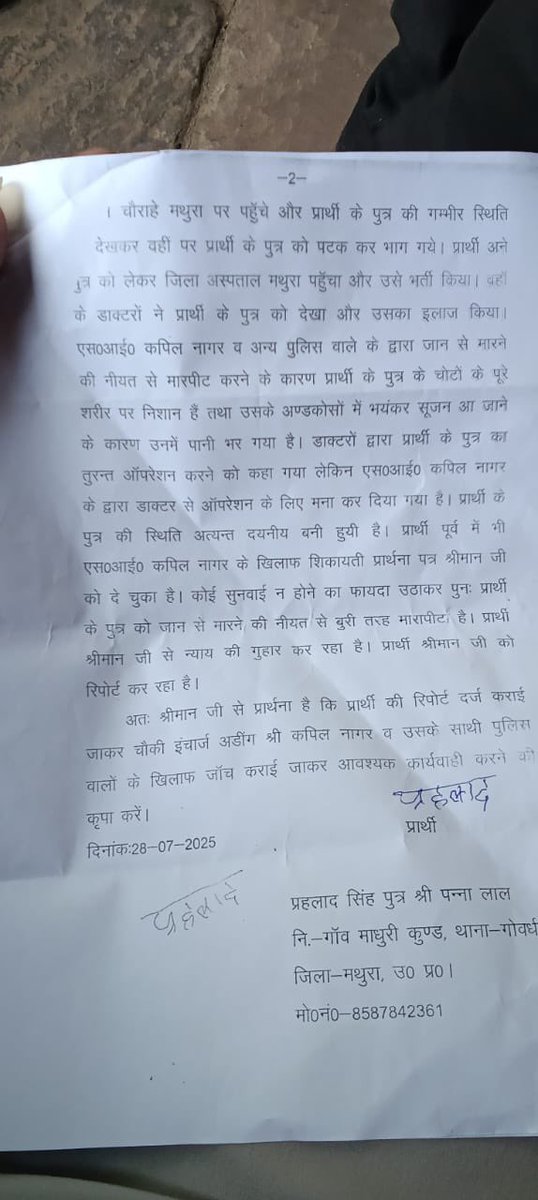 —2—
। चौराहे मथुरा पर पहुँचे और प्रार्थी के पुत्र की गम्भीर स्थिति
देखकर वहीं पर प्रार्थी के पुत्र को पटक कर भाग गये। प्रार्थी अने
पुत्र को लेकर जिला अस्पताल मथुरा पहुँचा और उसे भर्ती किया। वहाँ
के डाक्टरों ने प्रार्थी के पुत्र को देखा और उसका इलाज किया।
एस0आई0 कपिल नागर व अन्य पुलिस वाले के द्वारा जान से मारने
की नीयत से मारपीट करने के कारण प्रार्थी के पुत्र के चोटों के पूरे
शरीर पर निशान हैं तथा उसके अण्डकोसों में भयंकर सूजन आ जाने
के कारण उनमें पानी भर गया है। डाक्टरों द्वारा प्रार्थी के पुत्र का
तुरन्त ऑपरेशन करने को कहा गया लेकिन एस0आई0 कपिल नागर
के द्वारा डाक्टर से ऑपरेशन के लिए मना कर दिया गया है। प्रार्थी के
पुत्र की स्थिति अत्यन्त दयनीय बनी हुयी है। प्रार्थी पूर्व में भी
एस0आई0 कपिल नागर के खिलाफ शिकायती प्रार्थना पत्र श्रीमान जी
को दे चुका है। कोई सुनवाई न होने का फायदा उठाकर पुनः प्रार्थी
के पुत्र को जान से मारने की नीयत से बुरी तरह मारापीटा है। प्रार्थी
श्रीमान जी से न्याय की गुहार कर रहा है। प्रार्थी श्रीमान जी को
रिपोर्ट कर रहा है।
अतः श्रीमान जी से प्रार्थना है कि प्रार्थी की रिपोर्ट दर्ज कराई
जाकर चौकी इंचार्ज अडींग श्री कपिल नागर व उसके साथी पुलिस
वालों के खिलाफ जाँच कराई जाकर आवश्यक कार्यवाही करने की
कृपा करें।
प्रहलाद
प्रार्थी
दिनांक:28-07-2025
प्रहलाद
प्रहलाद सिंह पुत्र श्री पन्ना लाल
नि.—गाँव माधुरी कुण्ड, थाना—गोवर्ध
जिला—मथुरा, उ0 प्र0।
मो0नं0—8587842361